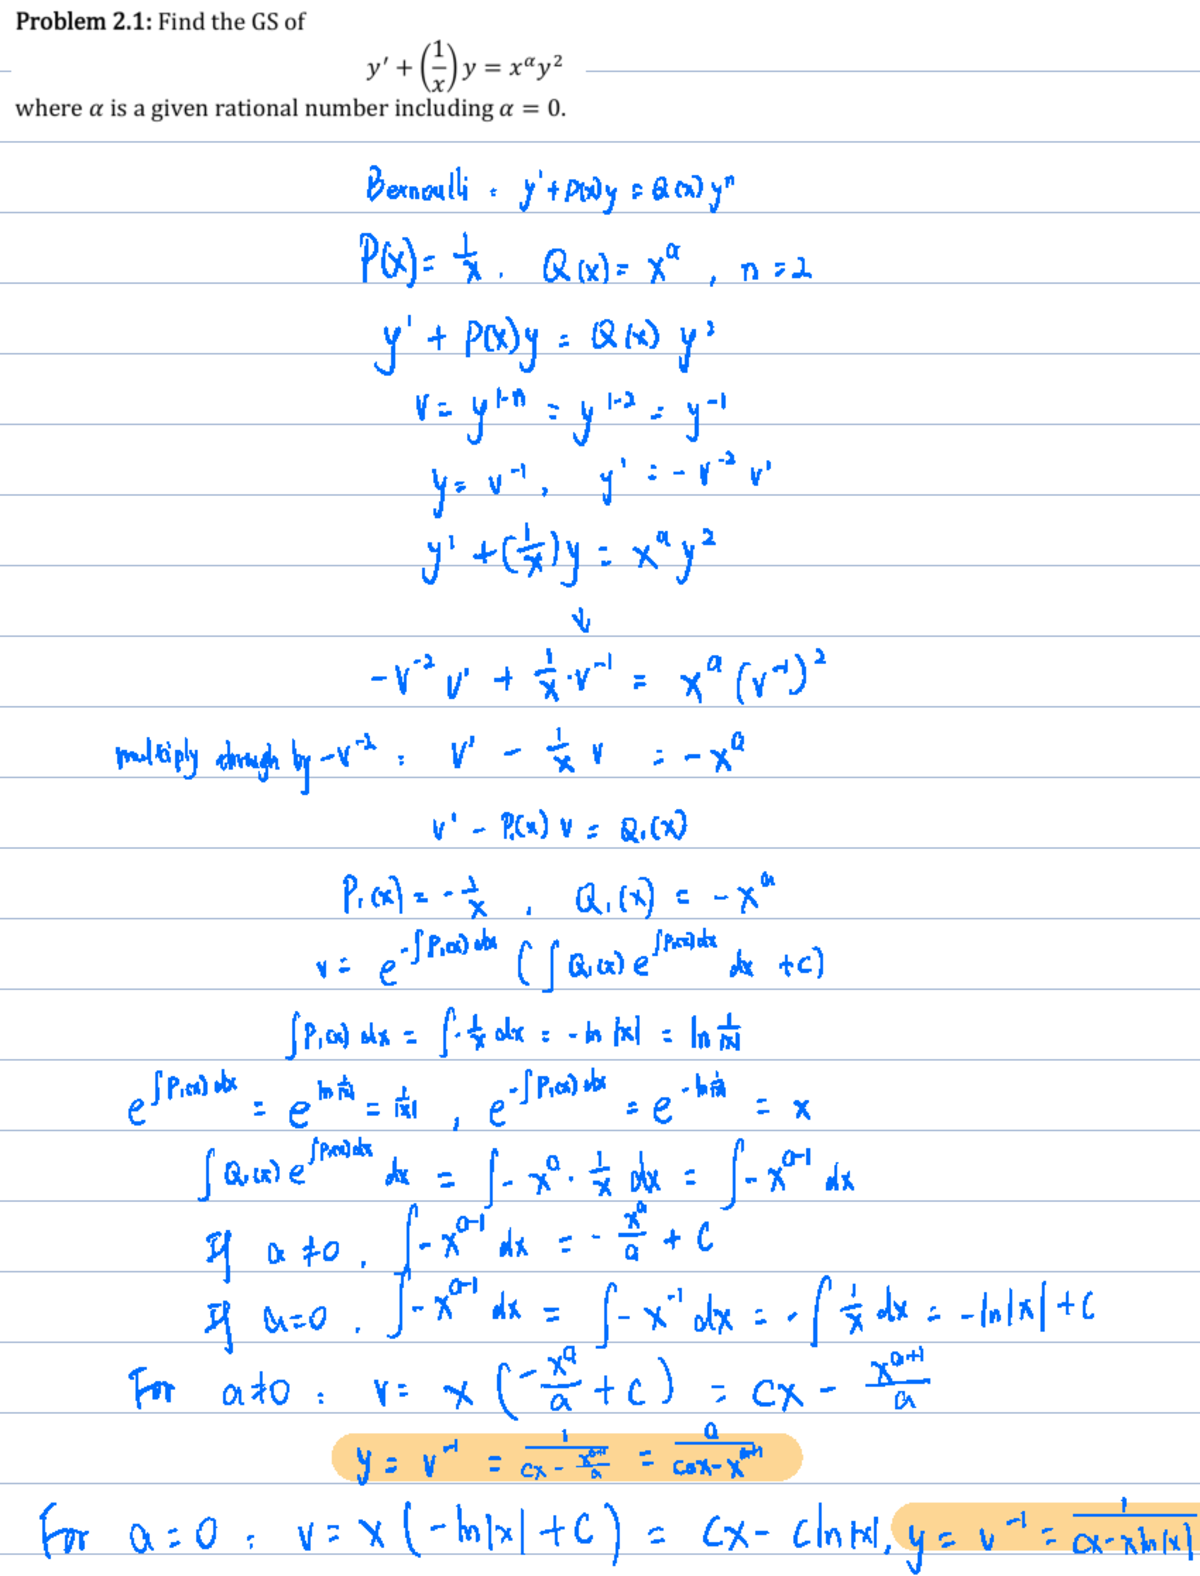 Problem 2.1: Find the GS of
y' + (1/x) y = x^α y²
where α is a given rational number including α = 0.
Bernoulli : y' + P(x)y = Q(x) yⁿ
P(x) = 1/x . Q(x) = x^a , n = 2
y' + P(x)y = Q(x) y²
v = y^(1-n) = y^(1-2) = y^(-1)
y = v^(-1), y' = -v^(-2) v'
y' + (1/x)y = x^a y²
↓
-v^(-2) v' + 1/x · v^(-1) = x^a (v^(-1))²
multiply through by -v^(-2) : v' - 1/x v = -x^a
v' - P₁(x) v = Q₁(x)
P₁(x) = -1/x , Q₁(x) = -x^a
v = e^(-∫P₁(x) dx) (∫Q₁(x) e^(∫P₁(x) dx) dx + C)
∫P₁(x) dx = ∫-1/x dx = -ln|x| = ln 1/|x|
e^(∫P₁(x) dx) = e^(ln 1/|x|) = 1/|x| , e^(-∫P₁(x) dx) = e^(-ln 1/|x|) = x
∫Q₁(x) e^(∫P₁(x) dx) dx = ∫-x^a · 1/x dx = ∫-x^(a-1) dx
If a ≠ 0 , ∫-x^(a-1) dx = -x^a/a + C
If a = 0 . ∫-x^(a-1) dx = ∫-x^(-1) dx = -∫1/x dx = -ln|x| + C
For a ≠ 0 : v = x (-x^a/a + C) = Cx - x^(a+1)/a
y = v^(-1) = 1/(Cx - x^(a+1)/a) = a/(Cax - x^(a+1))
For a = 0 : v = x (-ln|x| + C) = Cx - Cln|x|, y = v^(-1) = 1/(Cx - xln|x|)